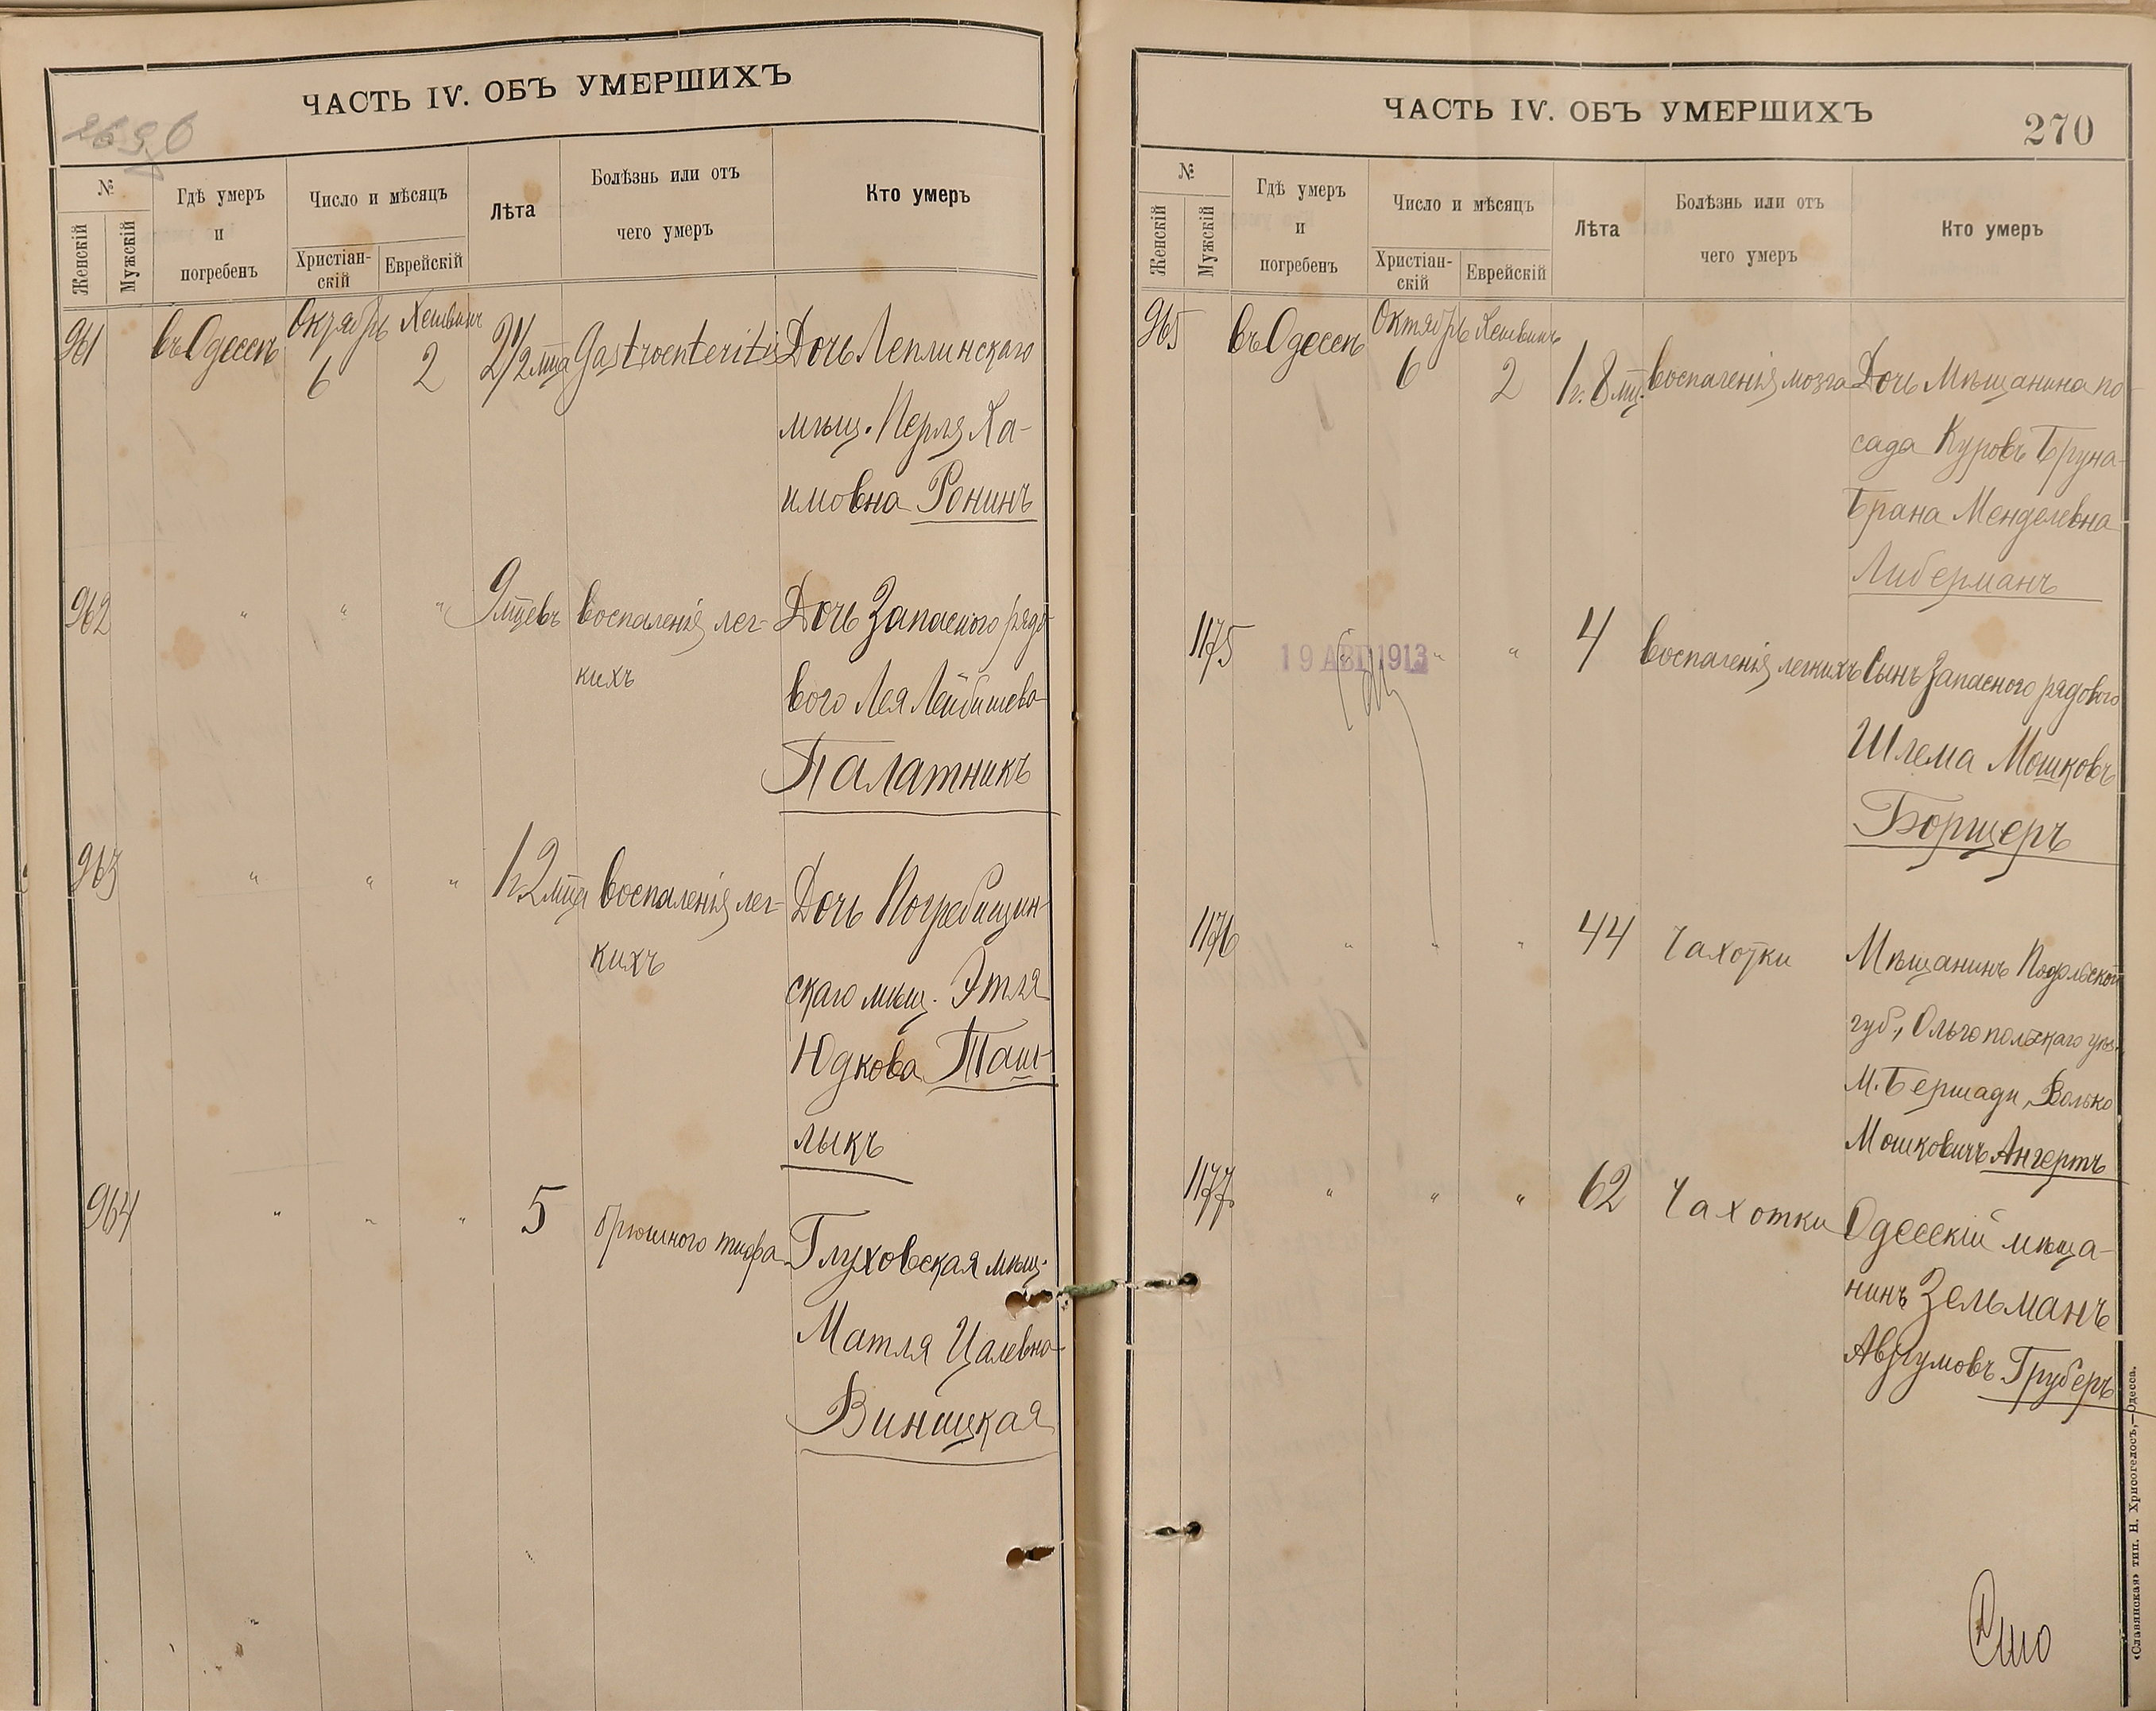 ЧАСТЬ IV. ОБЪ УМЕРШИХЪ
№
Женскій
Мужскій
Гдѣ умеръ
и
погребенъ
Число и мѣсяцъ
Христіан-
скій
Еврейскій
Лѣта
Болѣзнь или отъ
чего умеръ
Кто умеръ
961 въ Одессѣ Октябрь 6 Хешвинъ 2 2 1/2 мца Gastroenteritis Дочь Леплинскаго
мѣщ. Перля Ха-
имовна Ронинъ
962 " " " 9 мцевъ воспаленія лег- Дочь Запасного рядо-
кихъ
вого Лея Лейбишева
Палатникъ
963 " " " 1 г. 2 мца воспаленія лег- Дочь Погребищин-
кихъ
скаго мѣщ. Этля
Юдкова Таш-
лыкъ
964 " " " 5 брюшного тифа Глуховская мѣщ.
Матля Цалевна
Виницкая
ЧАСТЬ IV. ОБЪ УМЕРШИХЪ
270
№
Женскій
Мужскій
Гдѣ умеръ
и
погребенъ
Число и мѣсяцъ
Христіан-
скій
Еврейскій
Лѣта
Болѣзнь или отъ
чего умеръ
Кто умеръ
965 въ Одессѣ Октябрь 6 Хешвинъ 2 1 г. 8 мц. воспаленія мозга Дочь Мѣщанина по-
сада Куровъ Бруна-
Брана Менделевна
Либерманъ
1175 " " " 4 воспаленія легкихъ Сынъ Запасного рядового
19 АВГ 1913
Шлема Мошковъ
Борщеръ
1176 " " " 44 Чахотки Мѣщанинъ Подольской
губ., Ольгопольскаго уѣз.
М. Бершади, Волько
Мошковичъ Ангертъ
1177 " " " 62 Чахотки Одесскій мѣща-
нинъ Зельманъ
Аврумовъ Груберъ
«Славянская» тип. Н. Хрисогелосъ,—Одесса.